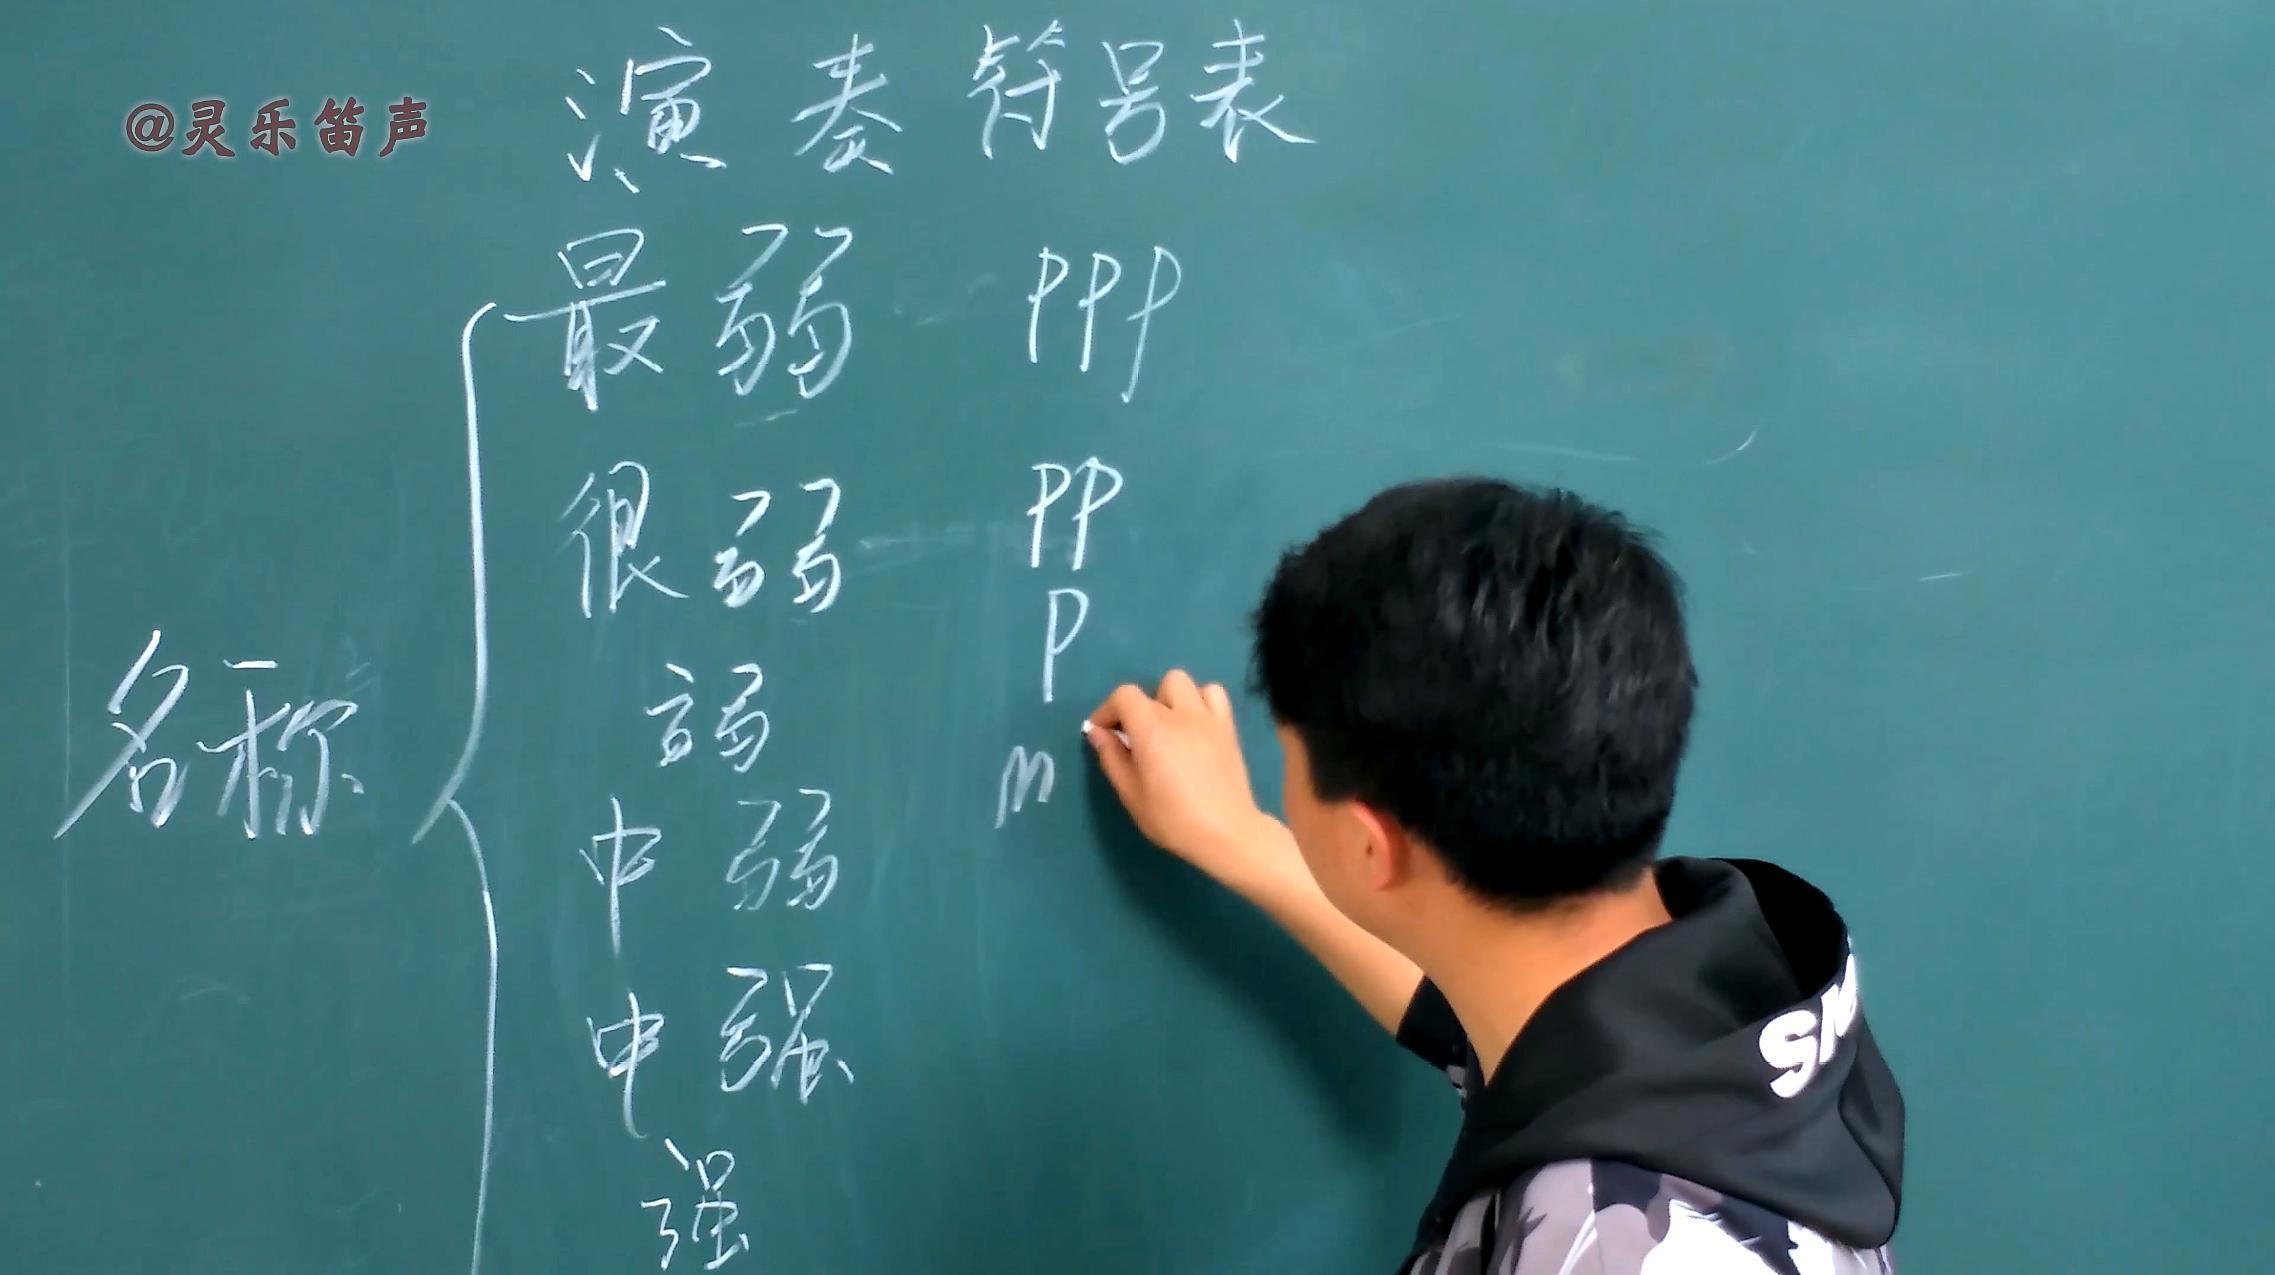 演奏符号表
@灵乐笛声
最弱 ppp
很弱 pp
弱 p
名称
中弱 m
中强
强
SM